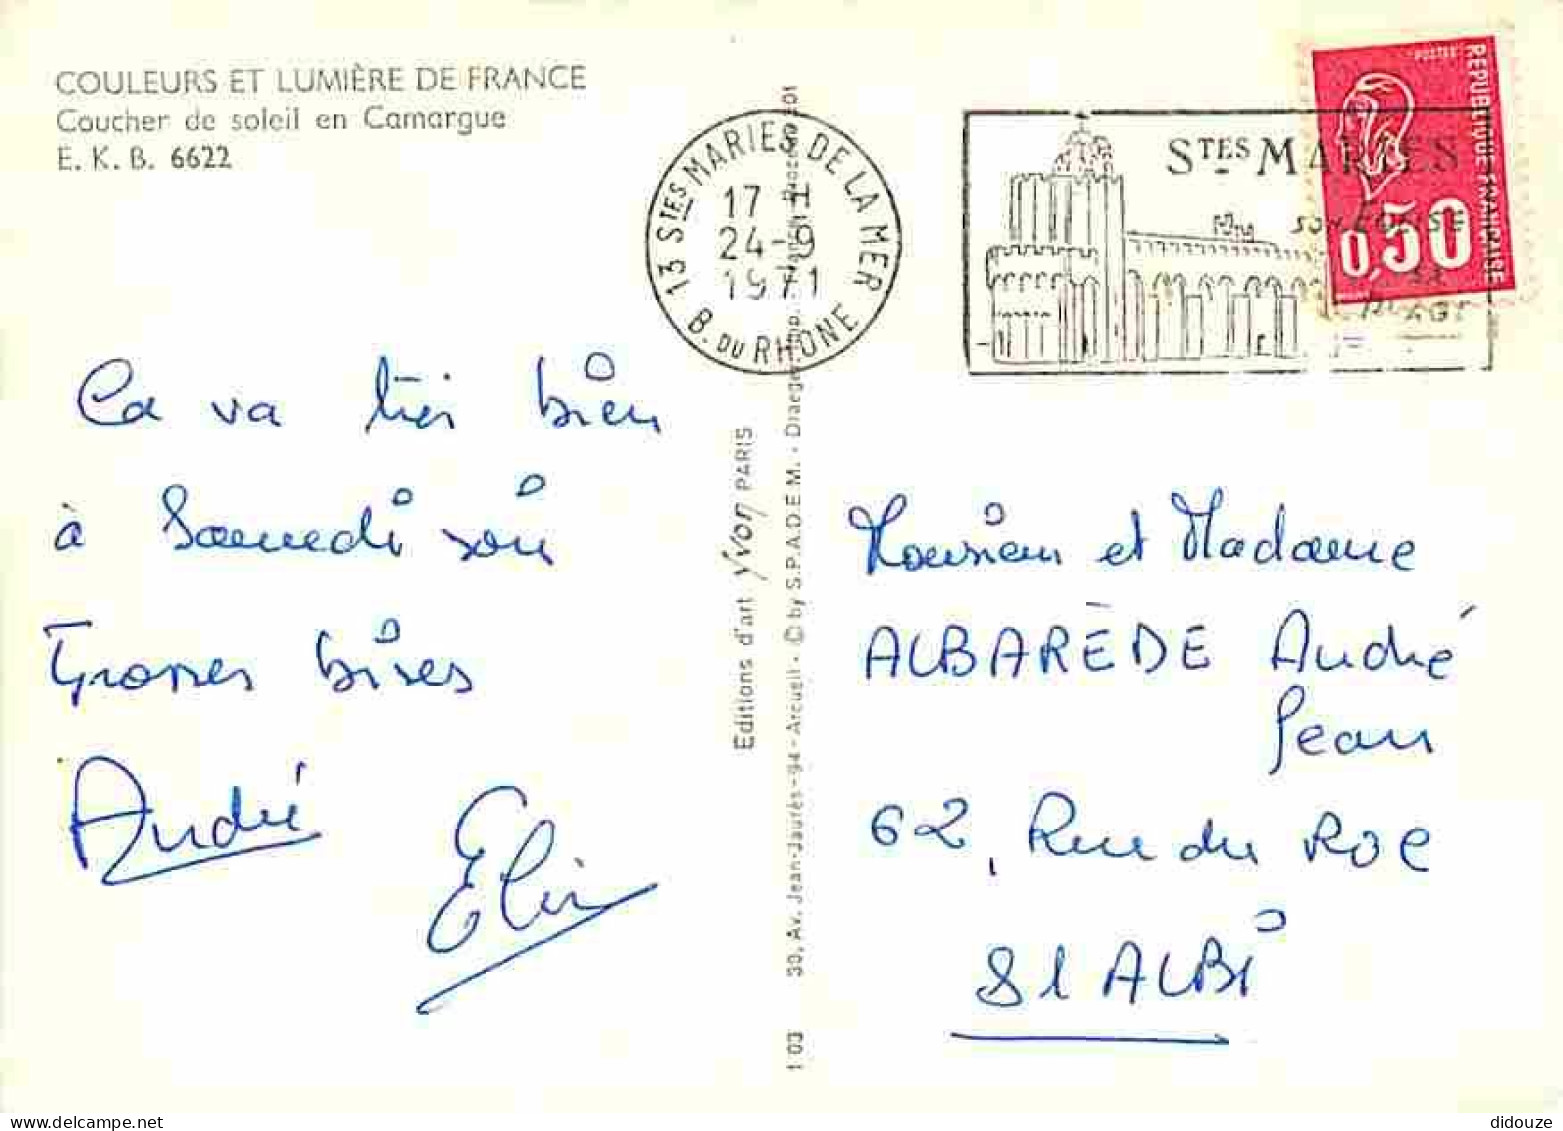 COULEURS ET LUMIÈRE DE FRANCE
Coucher de soleil en Camargue
E. K. B. 6622
13 STES MARIES DE LA MER
17 H
24-9
1971
B. DU RHONE
STES MARIES
SON EGLISE
SA
PLAGE
POSTES
REPUBLIQUE FRANÇAISE
0,50
Ca va très bien
à Samedi soir
Grosses bises
André
Elin
Editions d'art Yvon PARIS
30, Av. Jean-Jaurès - 94 - Arcueil - © by S.P.A.D.E.M. - Draeger imp.
1 03
Monsieur et Madame
ALBARÈDE André
Jean
62, Rue du Roc
81 ALBI
didouze